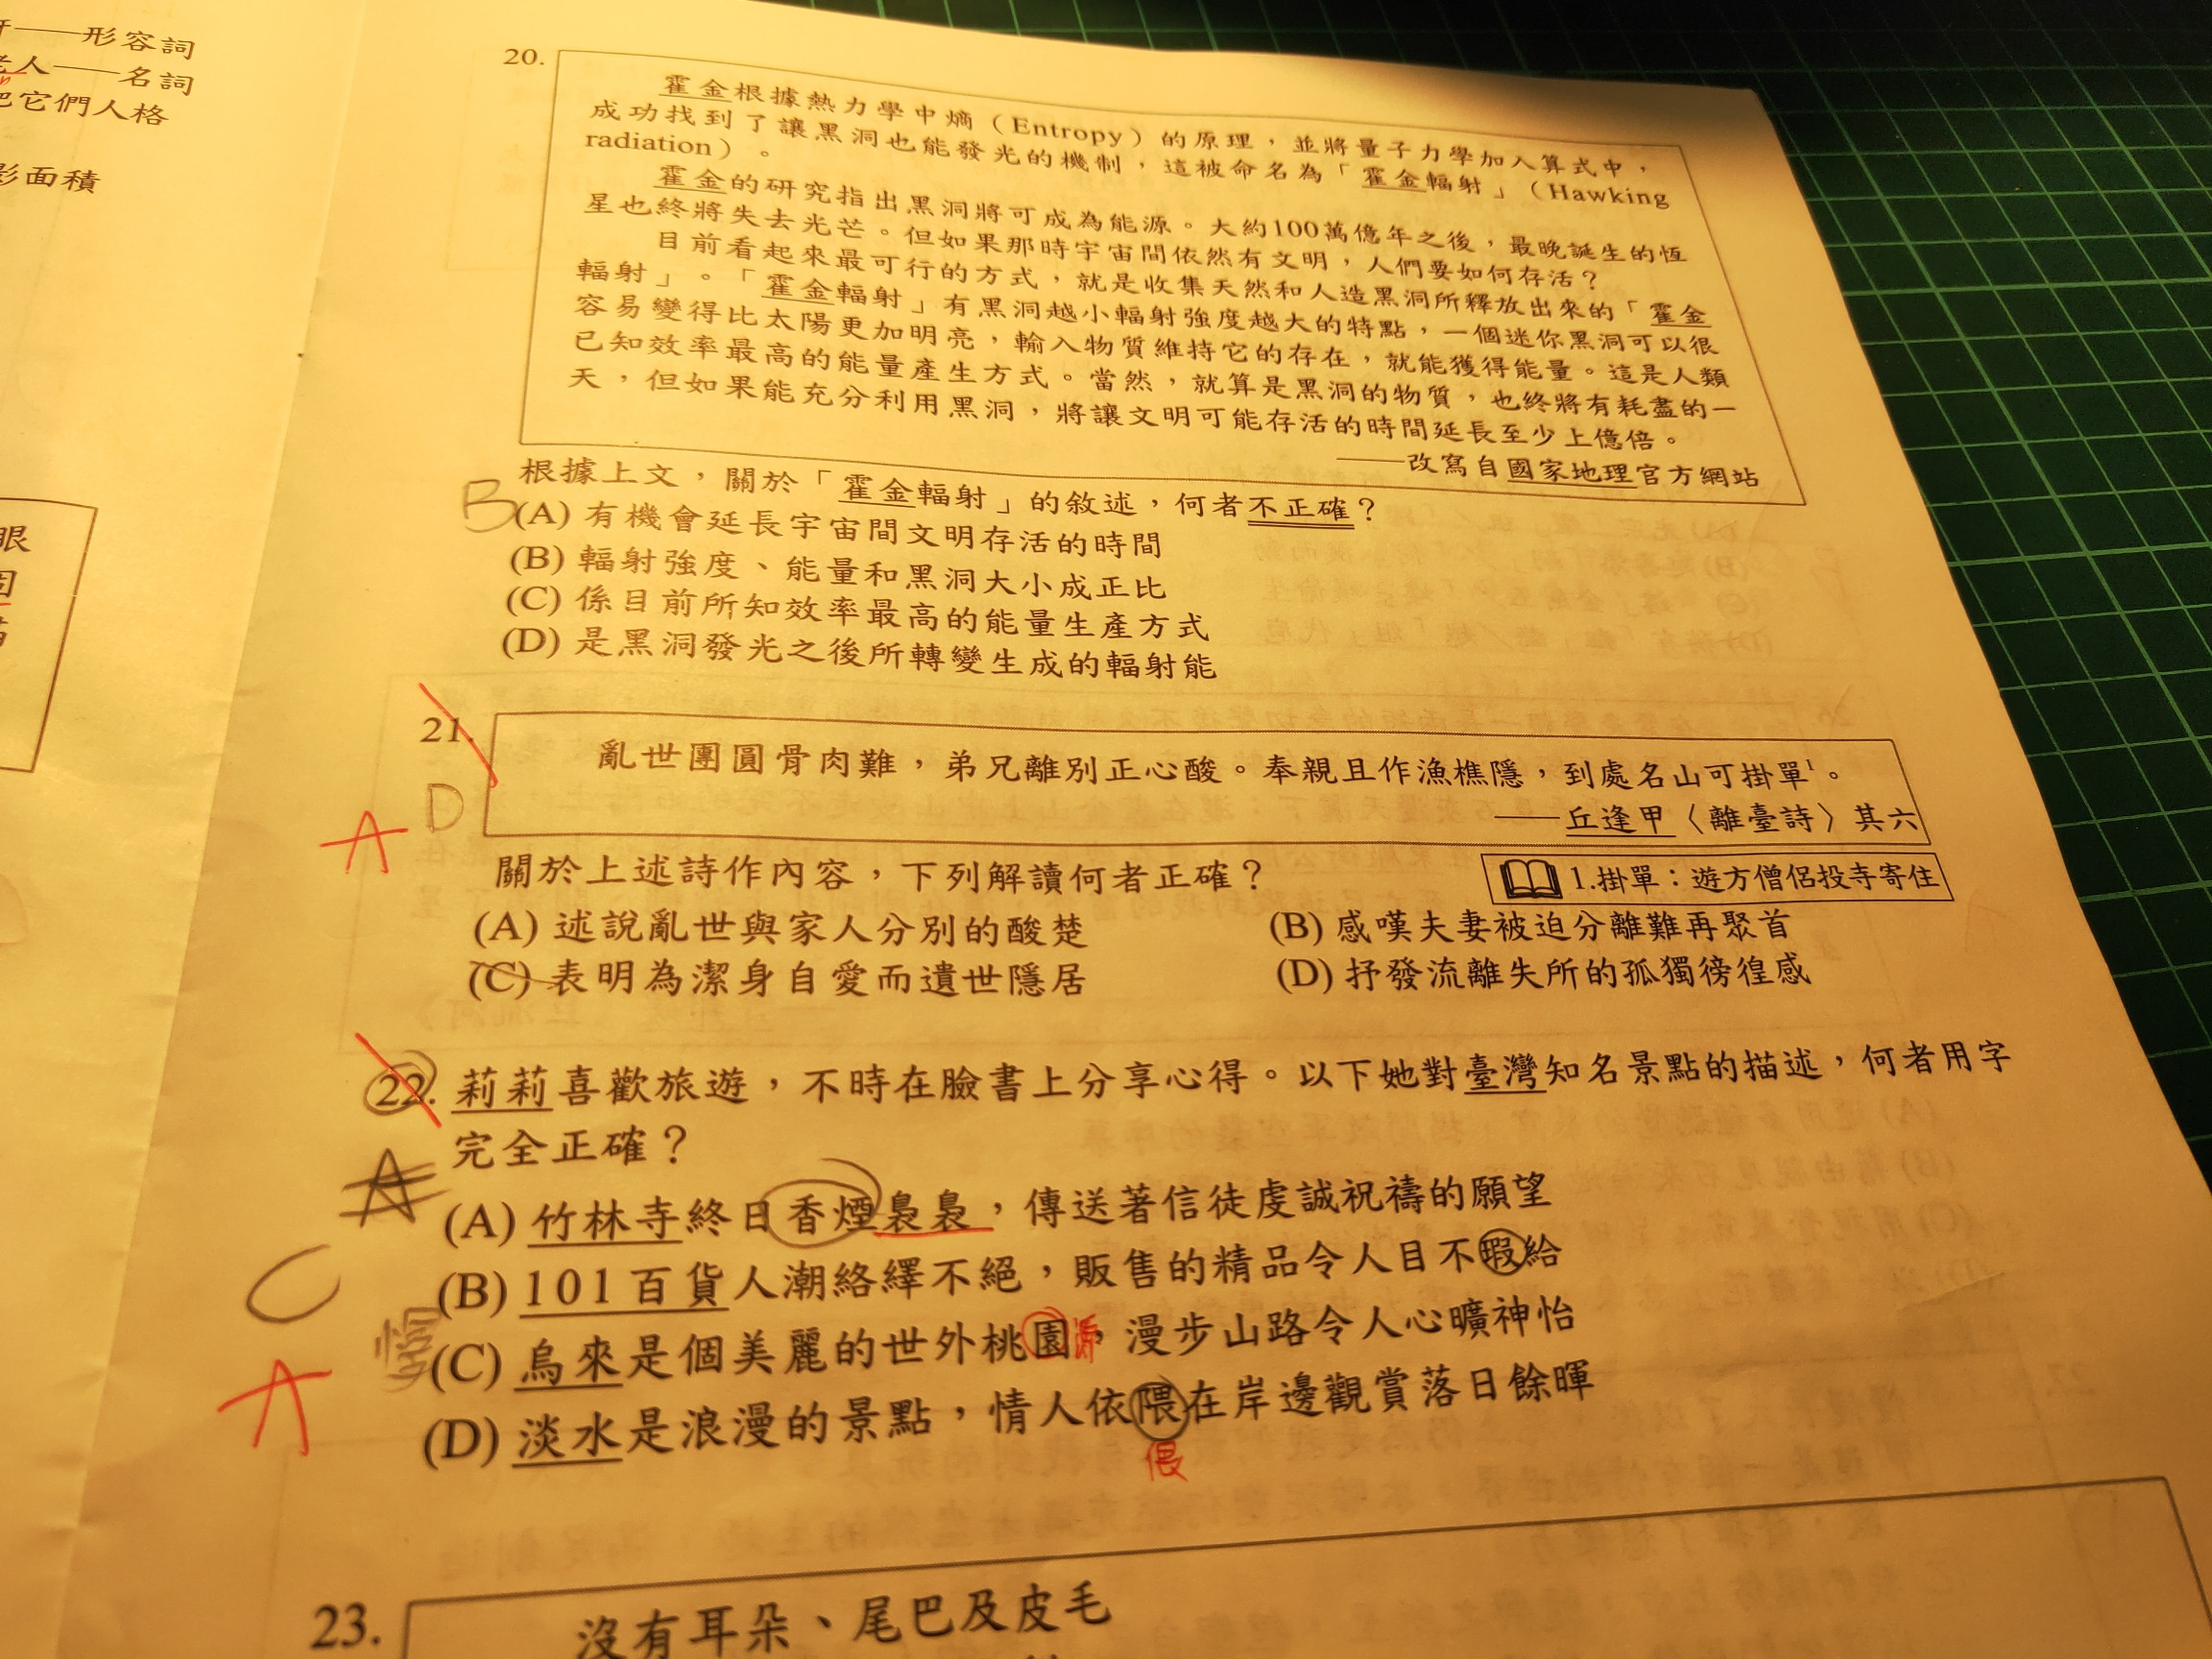 形容詞
人——名詞
把它們人格
影面積
眼
20.
霍金根據熱力學中熵（Entropy）的原理，並將量子力學加入算式中，
成功找到了讓黑洞也能發光的機制，這被命名為「霍金輻射」（Hawking
radiation）。
霍金的研究指出黑洞將可成為能源。大約100萬億年之後，最晚誕生的恆
星也終將失去光芒。但如果那時宇宙間依然有文明，人們要如何存活？
目前看起來最可行的方式，就是收集天然和人造黑洞所釋放出來的「霍金
輻射」。「霍金輻射」有黑洞越小輻射強度越大的特點，一個迷你黑洞可以很
容易變得比太陽更加明亮，輸入物質維持它的存在，就能獲得能量。這是人類
已知效率最高的能量產生方式。當然，就算是黑洞的物質，也終將有耗盡的一
天，但如果能充分利用黑洞，將讓文明可能存活的時間延長至少上億倍。
——改寫自國家地理官方網站
根據上文，關於「霍金輻射」的敘述，何者不正確？
B
(A) 有機會延長宇宙間文明存活的時間
(B) 輻射強度、能量和黑洞大小成正比
(C) 係目前所知效率最高的能量生產方式
(D) 是黑洞發光之後所轉變生成的輻射能
21.
亂世團圓骨肉難，弟兄離別正心酸。奉親且作漁樵隱，到處名山可掛單1。
——丘逢甲〈離臺詩〉其六
D
A
關於上述詩作內容，下列解讀何者正確？
1.掛單：遊方僧侶投寺寄住
(A) 述說亂世與家人分別的酸楚
(B) 感嘆夫妻被迫分離難再聚首
(C) 表明為潔身自愛而遺世隱居
(D) 抒發流離失所的孤獨徬徨感
22. 莉莉喜歡旅遊，不時在臉書上分享心得。以下她對臺灣知名景點的描述，何者用字
完全正確？
A
(A) 竹林寺終日香煙裊裊，傳送著信徒虔誠祝禱的願望
C
(B) 101百貨人潮絡繹不絕，販售的精品令人目不瑕給
(C) 烏來是個美麗的世外桃園，漫步山路令人心曠神怡
源
A
(D) 淡水是浪漫的景點，情人依隈在岸邊觀賞落日餘暉
偎
23.
沒有耳朵、尾巴及皮毛